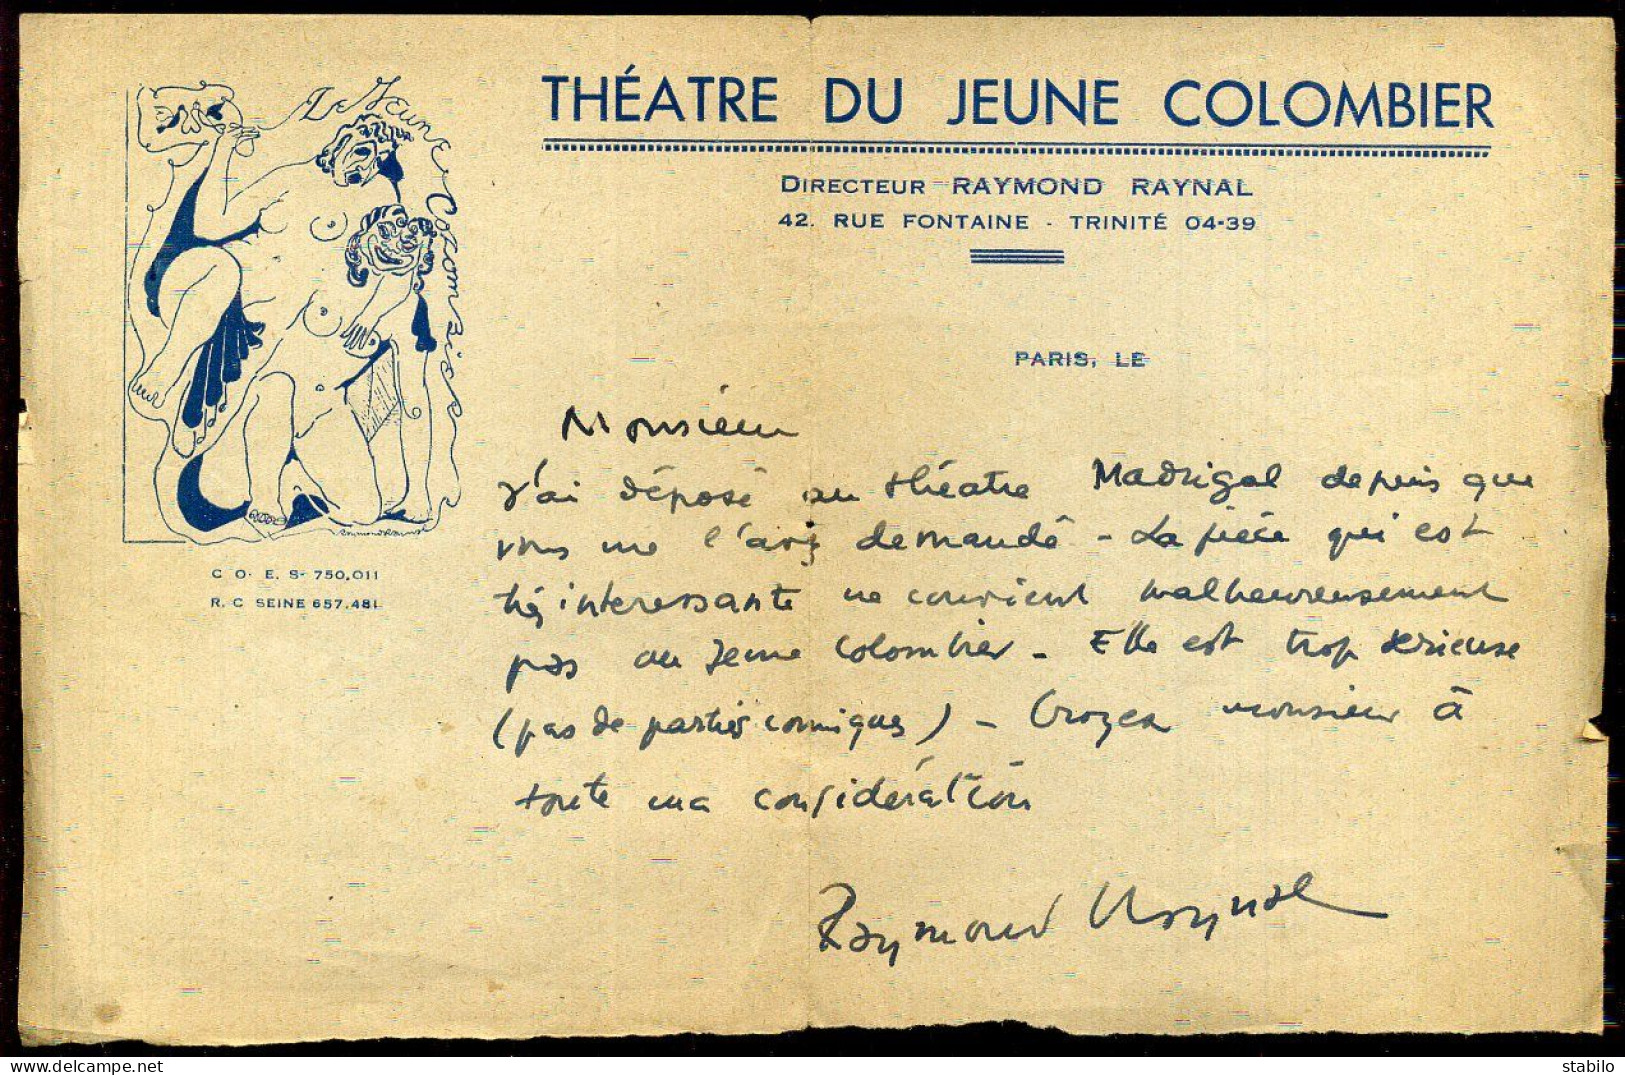 Le Jeune Colombier
THÉATRE DU JEUNE COLOMBIER
DIRECTEUR RAYMOND RAYNAL
42. RUE FONTAINE - TRINITÉ 04-39
PARIS, LE
C O. E. S- 750.011
R. C SEINE 657.481
Monsieur
J'ai déposé au théatre Madrigal depuis que
vous me l'avez demandé - La pièce qui est
très interessante ne convient malheureusement
pas au Jeune Colombier - Elle est trop sérieuse
(pas de parties comiques) - Croyez monsieur à
toute ma considération
Raymond Raynal
stabilo